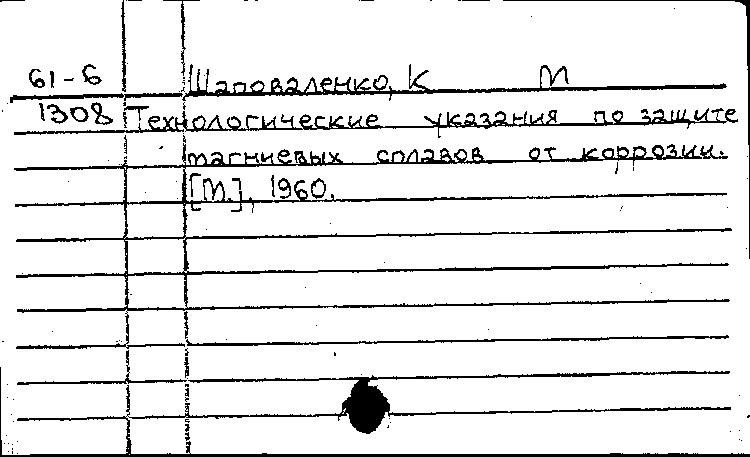 61-6 Шаповаленко, К М
1308 Технологические указания по защите
магниевых сплавов от коррозии.
[М.], 1960.